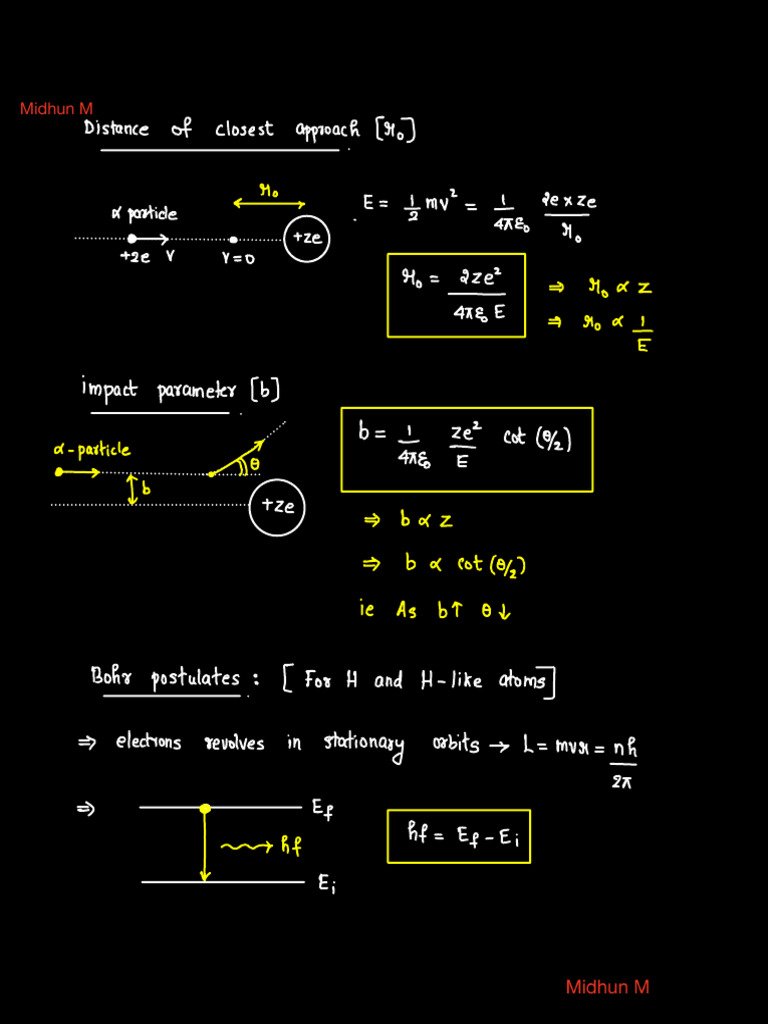 Midhun M
Distance of closest approach [r₀]
r₀
α particle
+2e V
V=0
+ze
E = 1/2 mv² = 1/4πε₀ 2e×ze/r₀
r₀ = 2ze²/4πε₀E
⇒ r₀ ∝ z
⇒ r₀ ∝ 1/E
impact parameter [b]
α-particle
θ
b
+ze
b = 1/4πε₀ ze²/E cot (θ/2)
⇒ b ∝ z
⇒ b ∝ cot (θ/2)
ie As b↑ θ↓
Bohr postulates : [For H and H-like atoms]
⇒ electrons revolves in stationary orbits → L = mvr = nh/2π
⇒
E_f
hf
E_i
hf = E_f - E_i
Midhun M